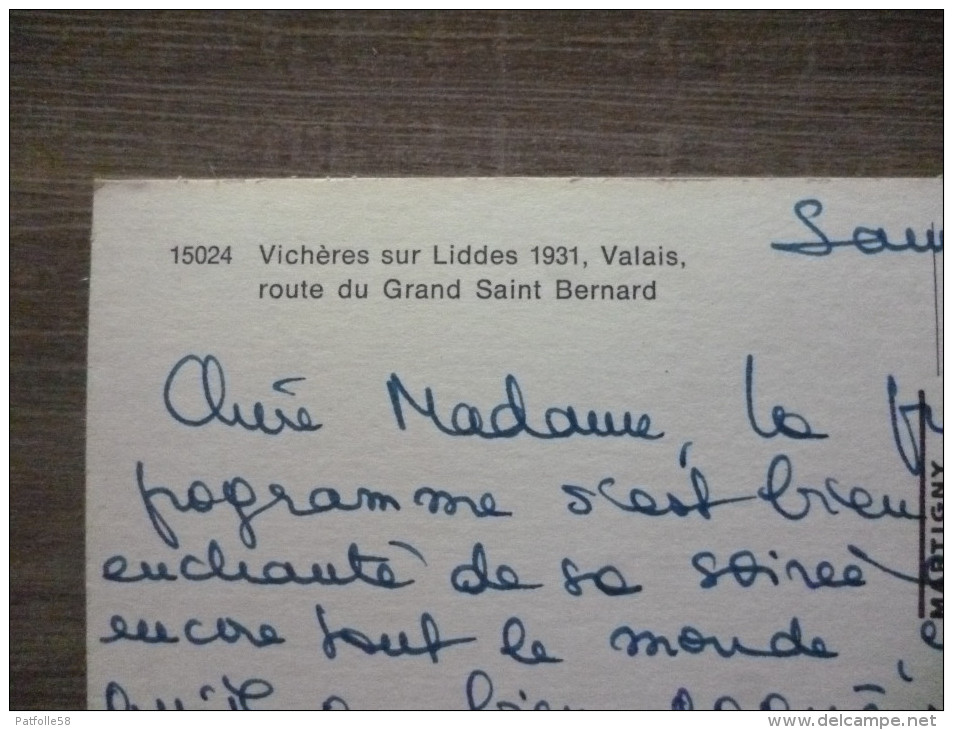 15024 Vichères sur Liddes 1931, Valais,
route du Grand Saint Bernard
Chère Madame, la
programme s'est bien
enchanté de sa soirée
encore tout le monde,
qu'il a bien
MARTIGNY
Patfolle58
www.delcampe.net